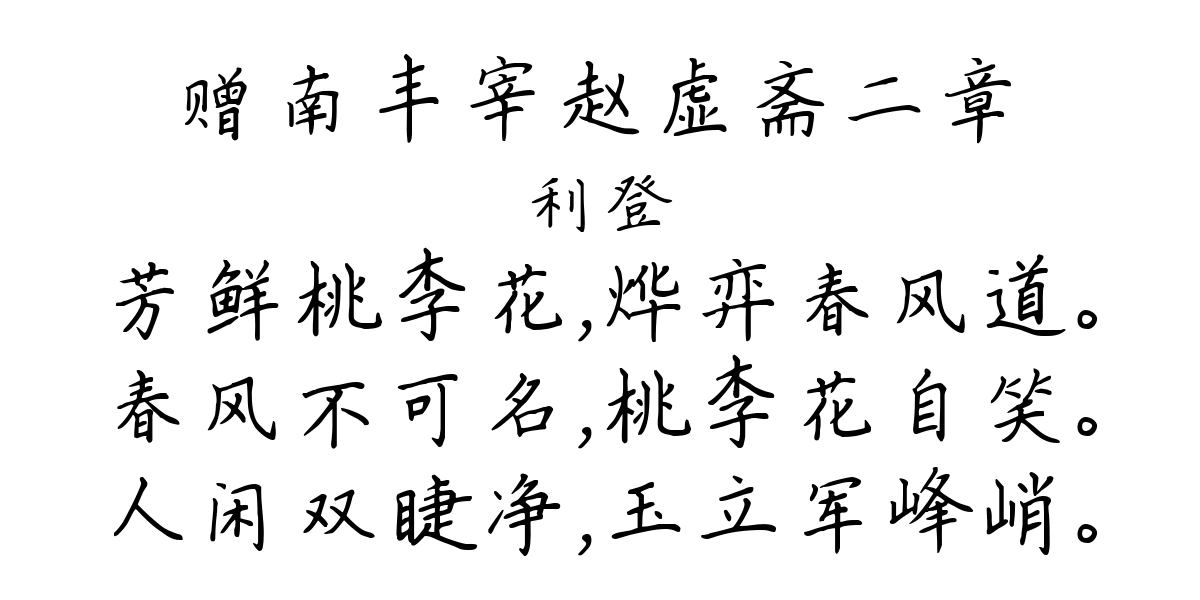 赠南丰宰赵虚斋二章
利登
芳鲜桃李花,烨弈春风道。
春风不可名,桃李花自笑。
人闲双睫净,玉立军峰峭。